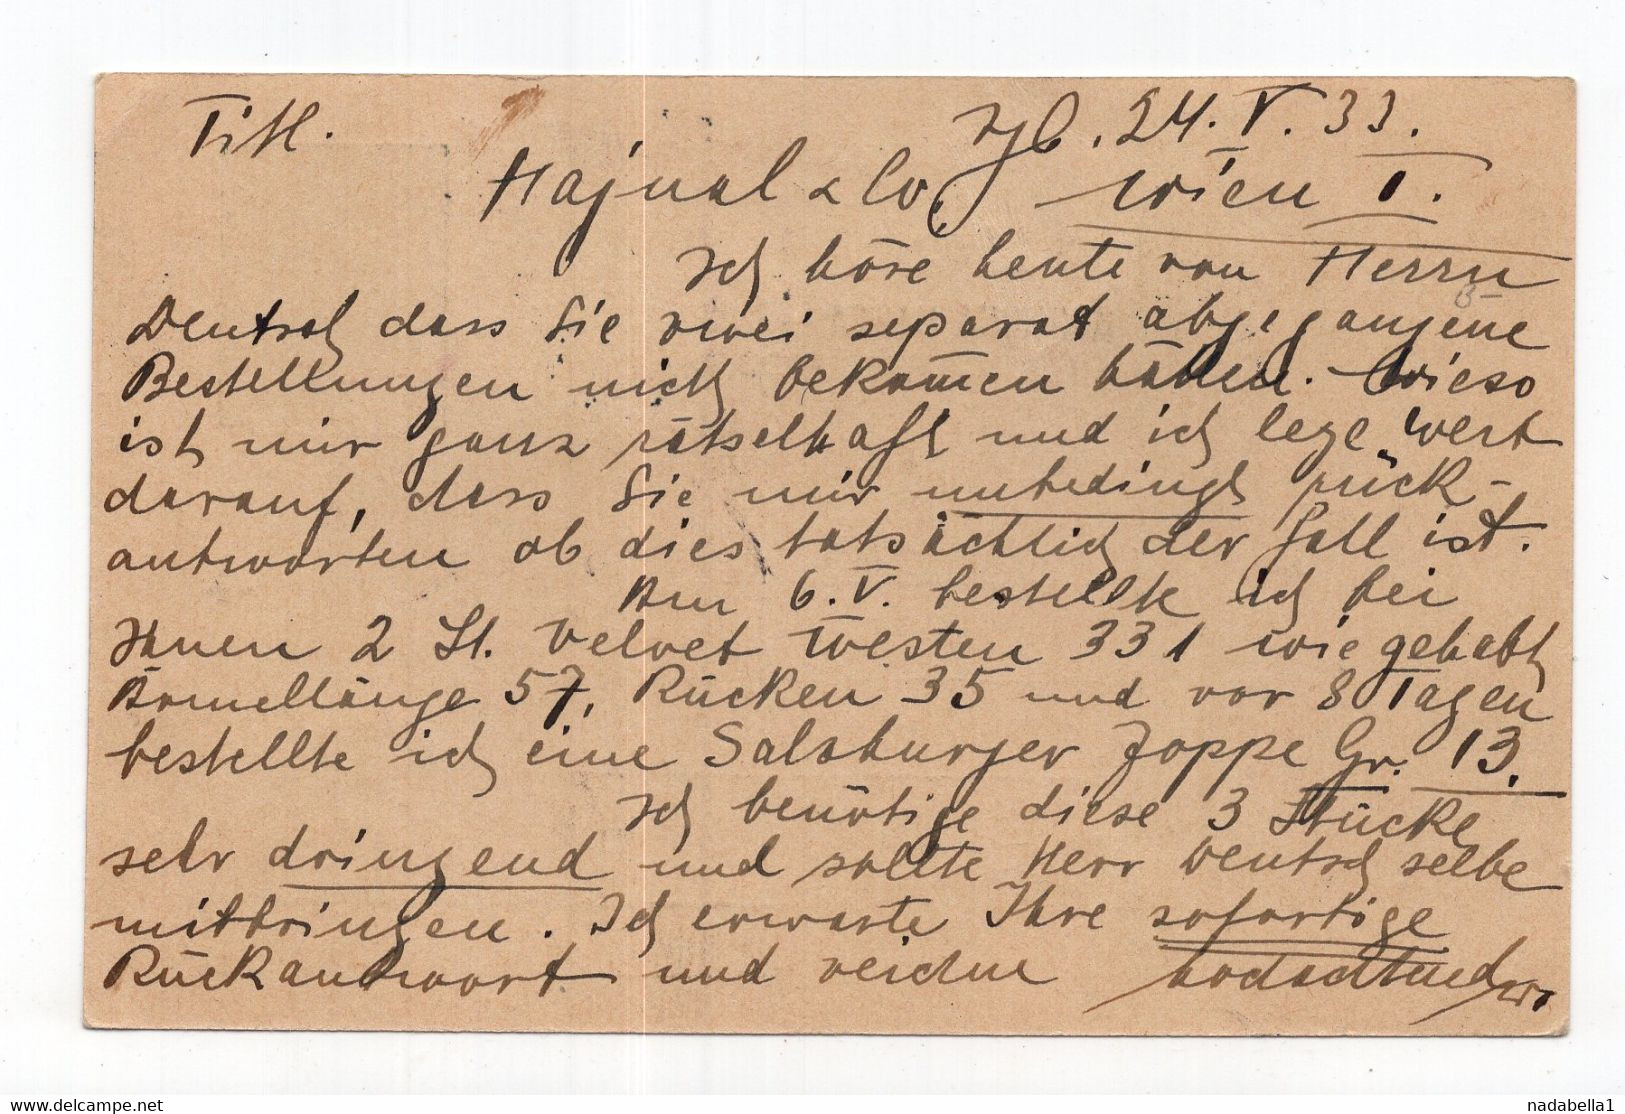 Titl. Zgb. 24.V.33.
Hajnal & Co. Wien I.
Ich höre heute von Herrn
Deutsch dass Sie zwei separat abgegangene
Bestellungen nicht bekommen hätten. Wieso
ist mir ganz rätselhaft und ich lege Wert
darauf, dass Sie mir unbedingt rück-
antworten ob dies tatsächlich der Fall ist.
Am 6.V. bestellte ich bei
Ihnen 2 St. Velvet Westen 331 wie gehabt
Ärmellänge 57, Rücken 35 und vor 8 Tagen
bestellte ich eine Salzburger Joppe Gr. 13.
Ich benötige diese 3 Stücke
sehr dringend und sollte Herr Deutsch selbe
mitbringen. Ich erwarte Ihre sofortige
Rückantwort und zeichne hochachtend
www.delcampe.net
nadabella1